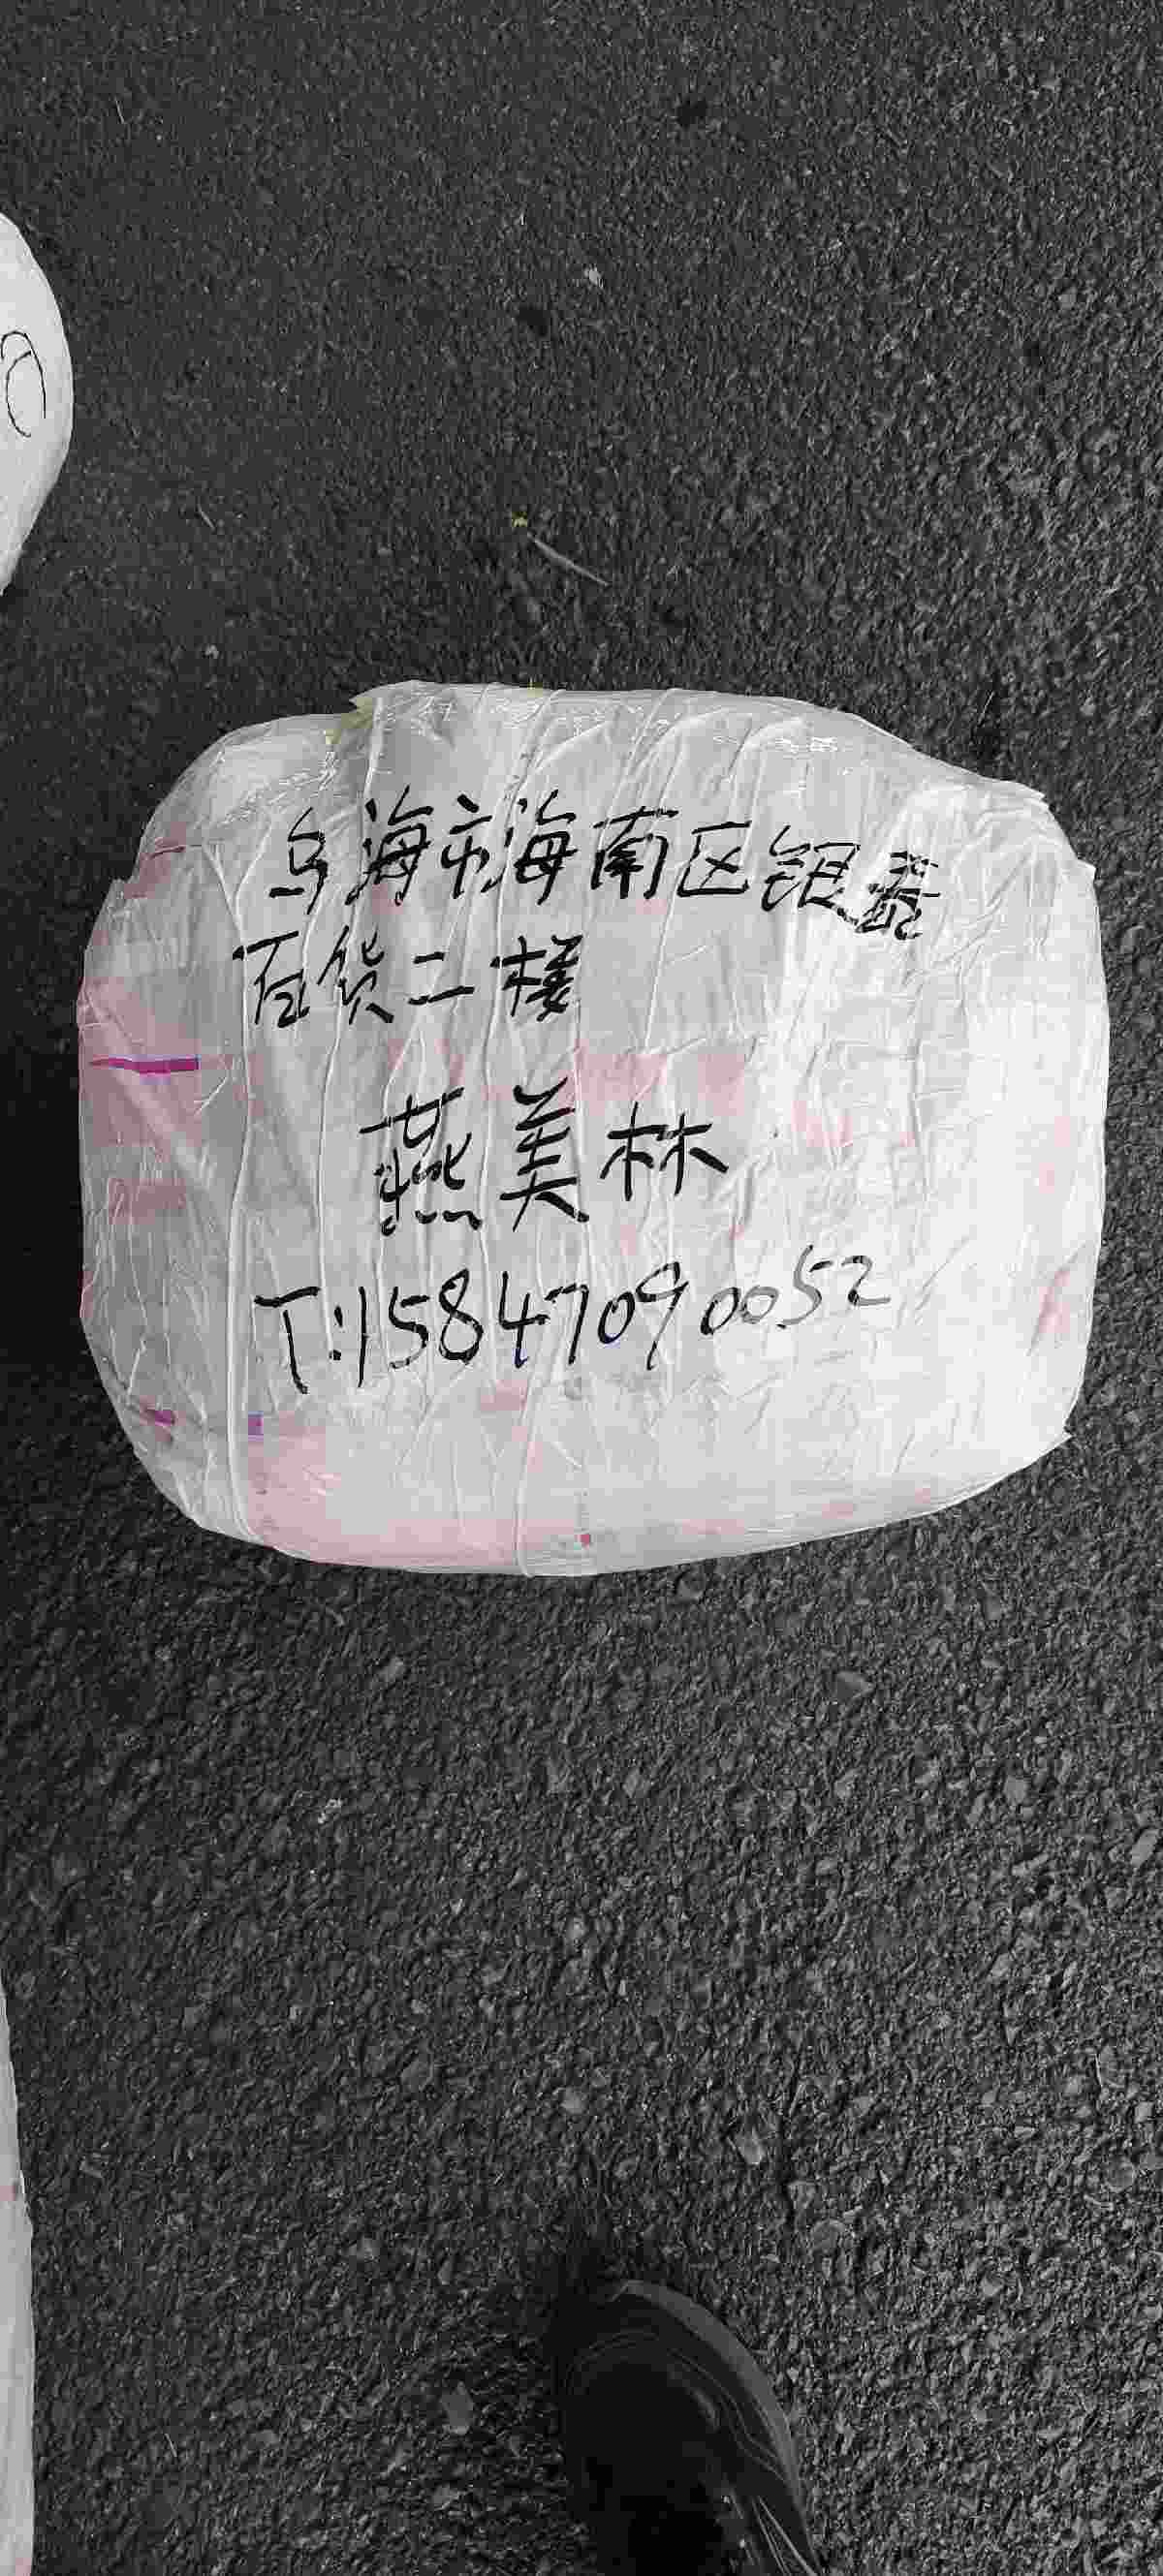 乌海市海南区银基
百货二楼
燕美林
T:15847090052